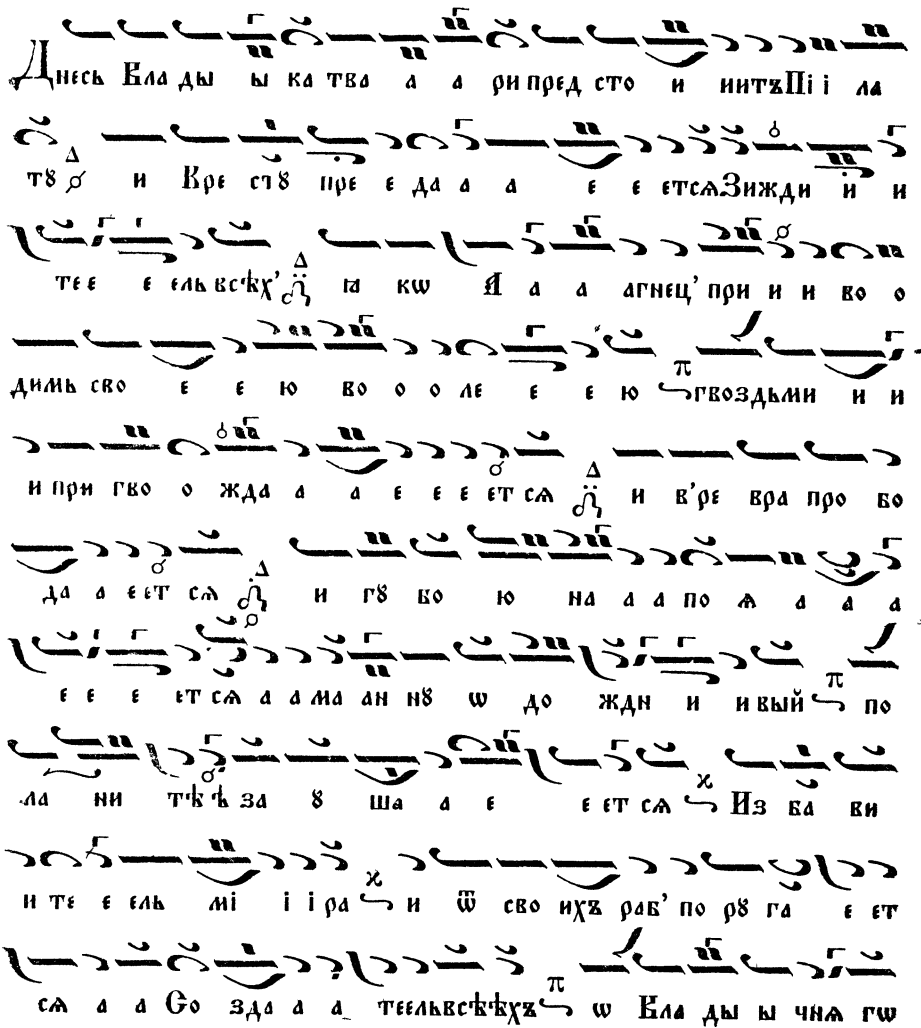 Днесь Вла ды ы ка тва а а ри пред сто и иитъ Пі і ла
тꙋ и Кре стꙋ пре е да а а е е етсѧ Зижди и и
те е е ель всѣх' ꙗ кѡ А а а агнец' при и и во о
димь сво е е ю во о о ле е ею гвоздьми и и
и при гво о жда а а е е е ет сѧ и в'ре бра про бо
да а е ет сѧ и гꙋ бо ю на а а по ѧ а а а
е е е ет сѧ а а ма ан нꙋ ѡ до жди и и вый по
ла ни тѣ ѣ за ꙋ ша а е е ет сѧ Из ба ви
и те е ель мі і і ра и ѿ сво ихъ раб' по рꙋ га е ет
сѧ а а Со зда а а те ель всѣ ѣхъ ѡ Вла ды ы чнѧ гѡ